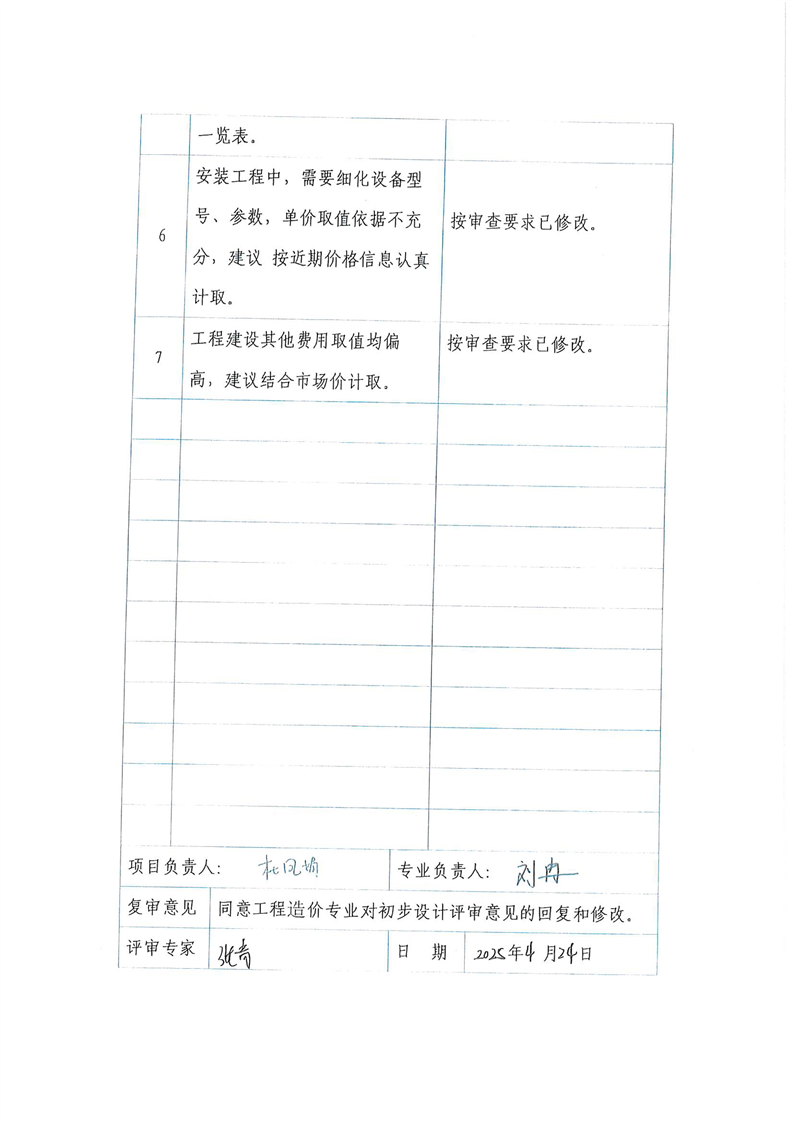 一览表。
安装工程中，需要细化设备型
号、参数，单价取值依据不充
6
按审查要求已修改。
分，建议 按近期价格信息认真
计取。
工程建设其他费用取值均偏
7
按审查要求已修改。
高，建议结合市场价计取。
项目负责人：
专业负责人： 刘冉
复审意见 同意工程造价专业对初步设计评审意见的回复和修改。
评审专家
日 期 2025年4月24日